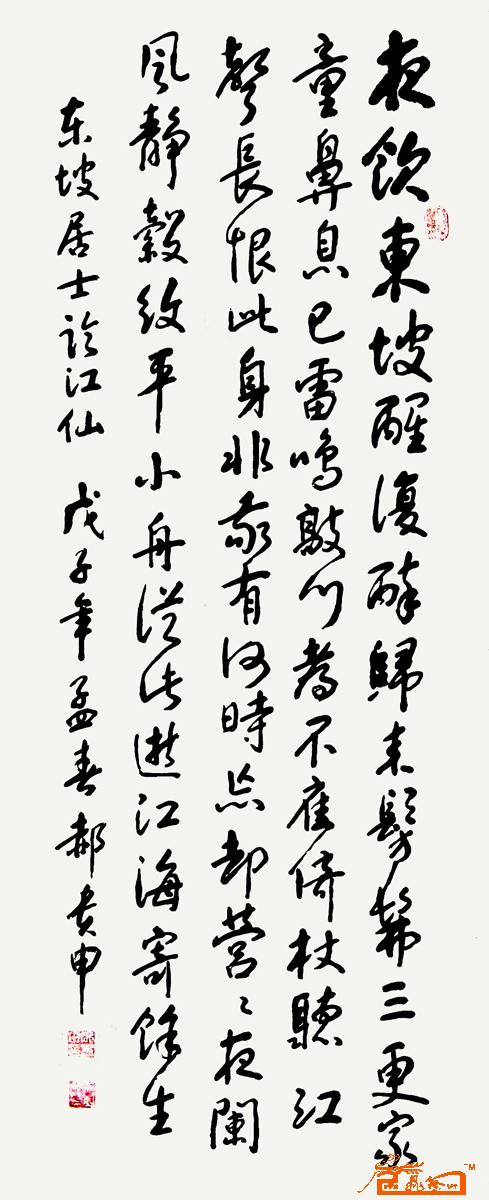 夜飲東坡醒復醉歸来髣髴三更家
童鼻息已雷鳴敲门都不應倚杖聽江
聲長恨此身非我有何時忘却營〻夜闌
風靜縠紋平小舟從此逝江海寄餘生
东坡居士临江仙 戊子年孟春郝贵申